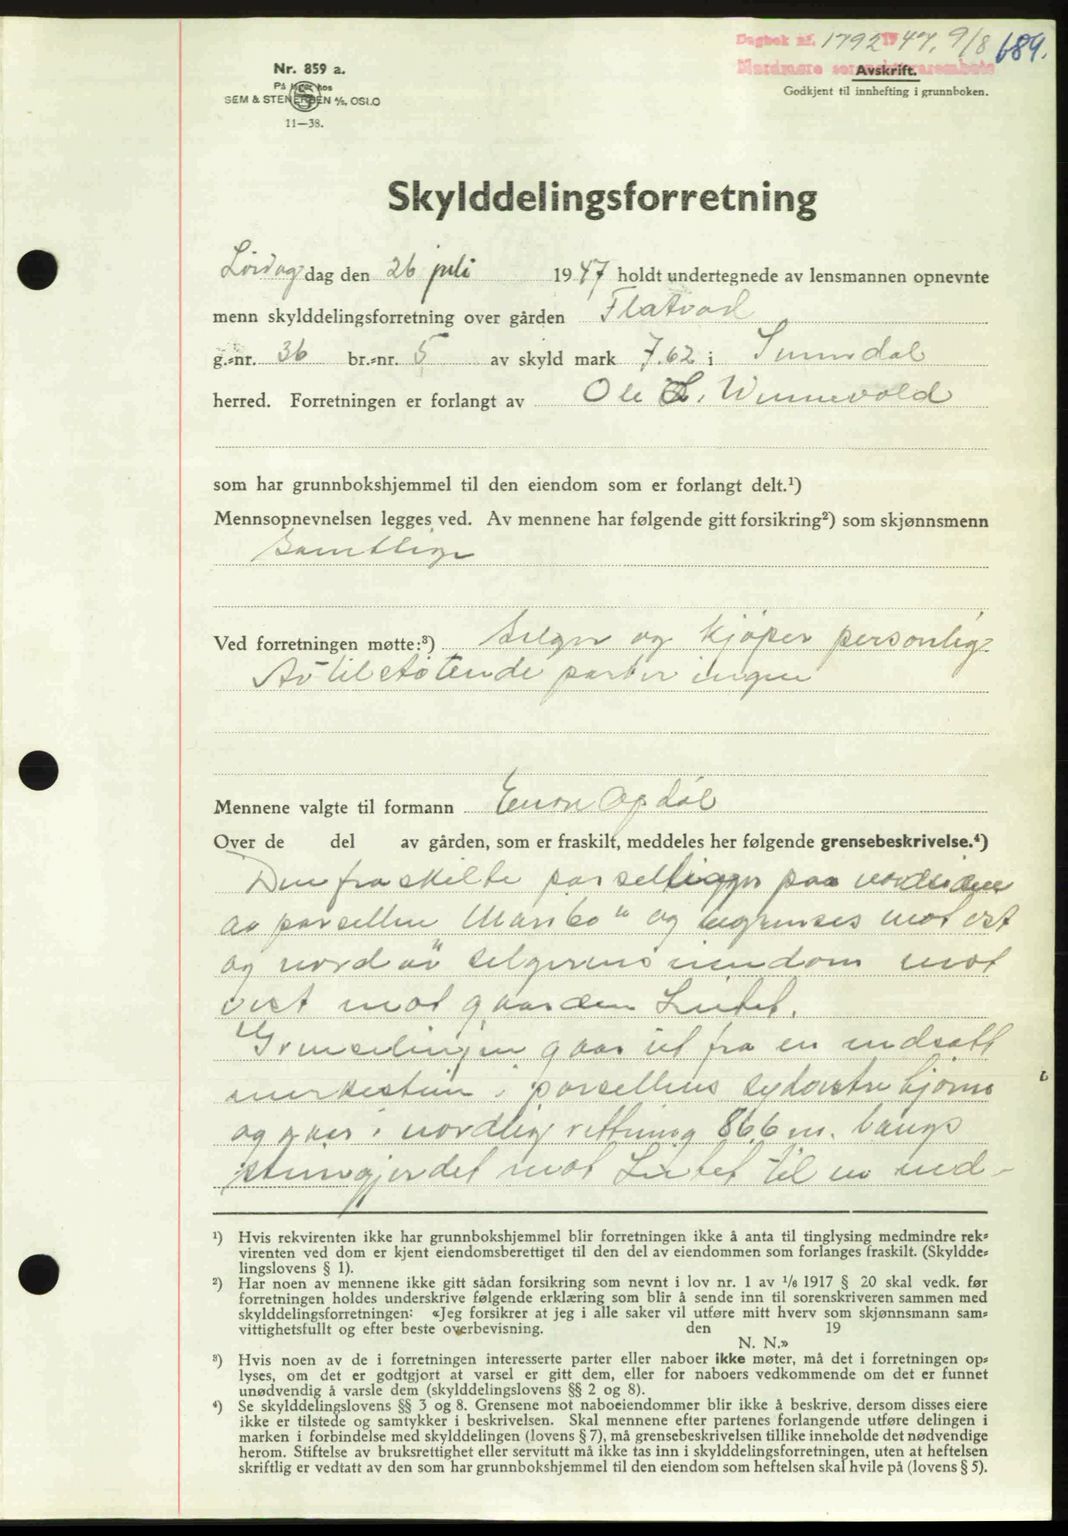 Dagbok nr. 1792 1947, 9/8 689.
Nordmøre sorenskriverembete
Nr. 859 a.
På lager hos
SEM & STENERSEN A/S, OSLO
11—38.
Avskrift.
Godkjent til innhefting i grunnboken.
Skylddelingsforretning
Lördag dag den 26 juli 1947 holdt undertegnede av lensmannen opnevnte
menn skylddelingsforretning over gården Flatvad
g.=nr. 36 br.=nr. 5 av skyld mark 7.62 i Sunndal
herred. Forretningen er forlangt av Ole L. Winnevold
som har grunnbokshjemmel til den eiendom som er forlangt delt.¹)
Mennsopnevnelsen legges ved. Av mennene har følgende gitt forsikring²) som skjønnsmenn
Samtlige
Ved forretningen møtte:³) Selger og kjöper personlig
Av tilstötende parter ingen
Mennene valgte til formann Opdöl
Over de del av gården, som er fraskilt, meddeles her følgende grensebeskrivelse.⁴)
Den fraskilte parsel ligger paa nordsiden
av parsellen Maribo" og begrenses mot öst
og nord av selgerens eiendom mot
vest mot gaarden Litlet.
Grenselinjen gaar ut fra en nedsatt
merkestein i parsellens sydvestre hjörne
og gaar i nordlig rettning 86.6 m. langs
steingjerdet mot Litlet til en ned-
¹) Hvis rekvirenten ikke har grunnbokshjemmel blir forretningen ikke å anta til tinglysing medmindre rek=
virenten ved dom er kjent eiendomsberettiget til den del av eiendommen som forlanges fraskilt. (Skyldde=
lingslovens § 1).
²) Har noen av mennene ikke gitt sådan forsikring som nevnt i lov nr. 1 av 1/6 1917 § 20 skal vedk. før
forretningen holdes underskrive følgende erklæring som blir å sende inn til sorenskriveren sammen med
skylddelingsforretningen: «Jeg forsikrer at jeg i alle saker vil utføre mitt hverv som skjønnsmann sam=
vittighetsfullt og efter beste overbevisning. den 19
N. N.»
³) Hvis noen av de i forretningen interesserte parter eller naboer ikke møter, må det i forretningen op=
lyses, om det er godtgjort at varsel er gitt dem, eller for naboers vedkommende om det er funnet
unødvendig å varsle dem (skylddelingslovens §§ 2 og 8).
⁴) Se skylddelingslovens §§ 3 og 8. Grensene mot naboeiendommer blir ikke å beskrive, dersom disses eiere
ikke er tilstede og samtykker i beskrivelsen. Skal mennene efter partenes forlangende utføre delingen i
marken i forbindelse med skylddelingen (lovens § 7), må grensebeskrivelsen tillike inneholde det nødvendige
herom. Stiftelse av bruksrettighet eller servitutt må ikke tas inn i skylddelingsforretningen, uten at heftelsen
skriftlig er vedtatt av den som har grunnbokshjemmel til den eiendom som heftelsen skal hvile på (lovens § 5).